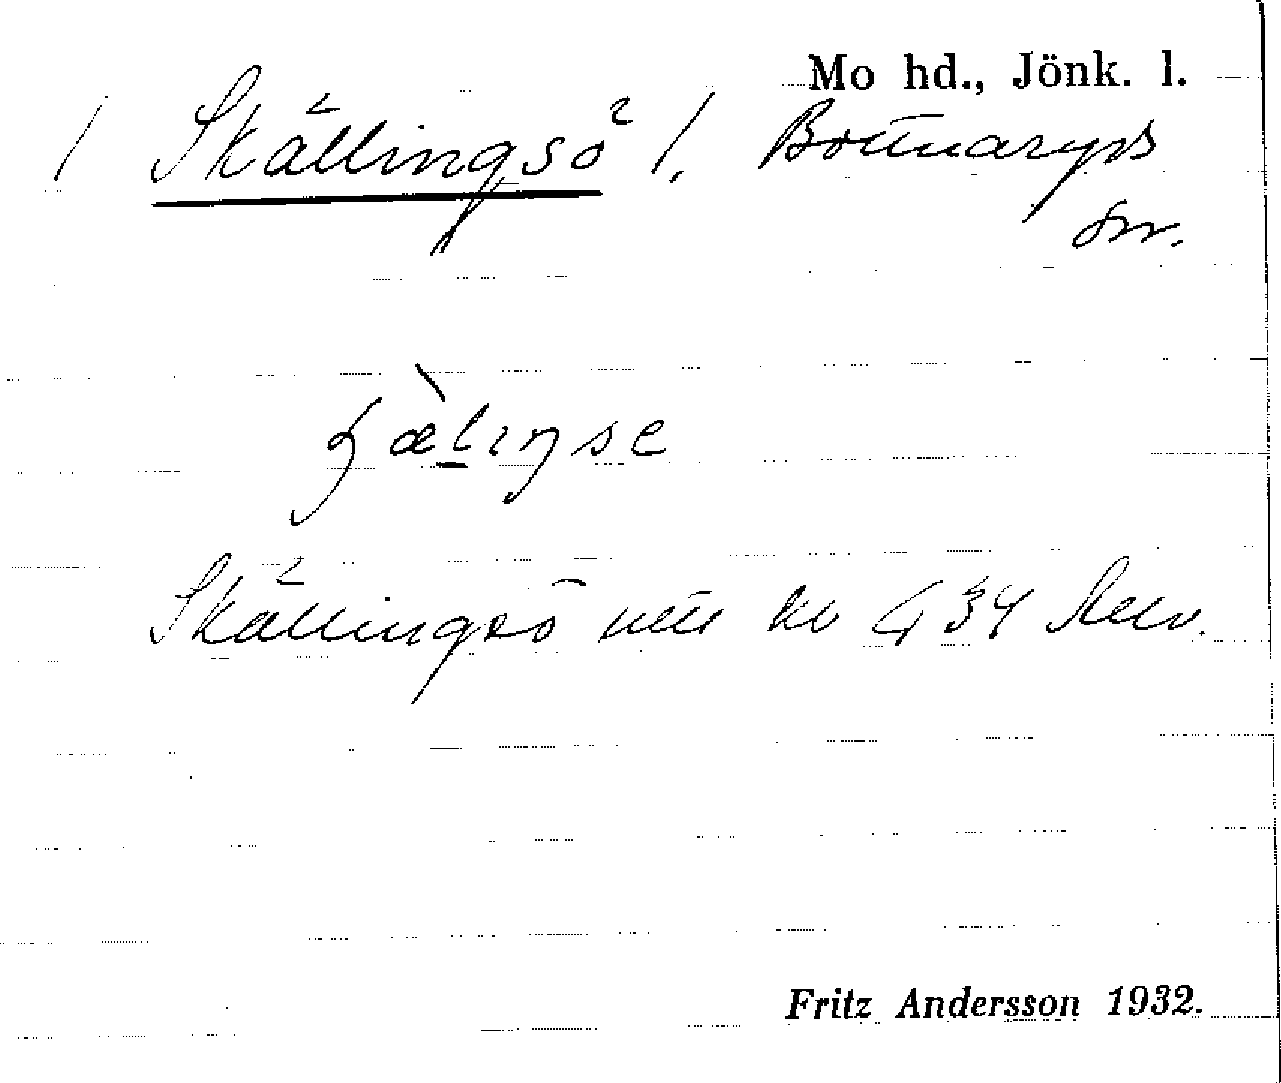 Mo hd., Jönk. l.
/ Skällingsö /. Bottnaryds
sn.
ꞩæ̀lıŋse
Skällingsö utr kv 434
Fritz Andersson 1932.